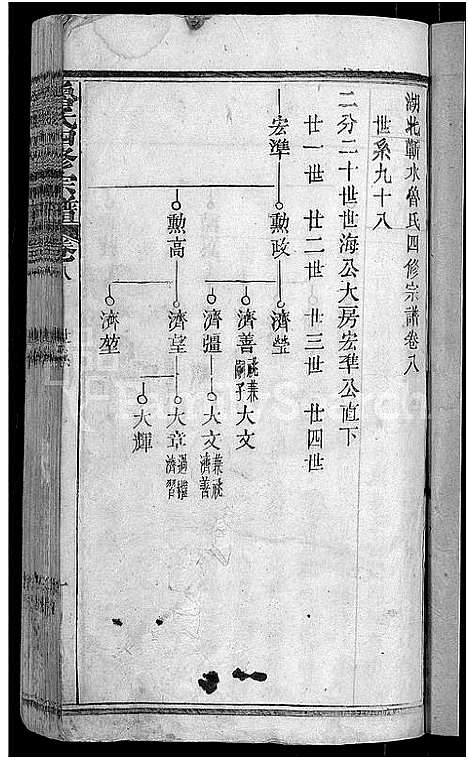 湖北蘄水魯氏四修宗譜卷八
世系九十八
二分二十世世海公大房宏準公直下
廿一世 廿二世 廿三世 廿四世
宏準 勳政 濟瑩
濟善 兼祧嗣子大文
濟疆 大文 兼祧濟善
勳高 濟望 大章 濟習
大輝
濟堃